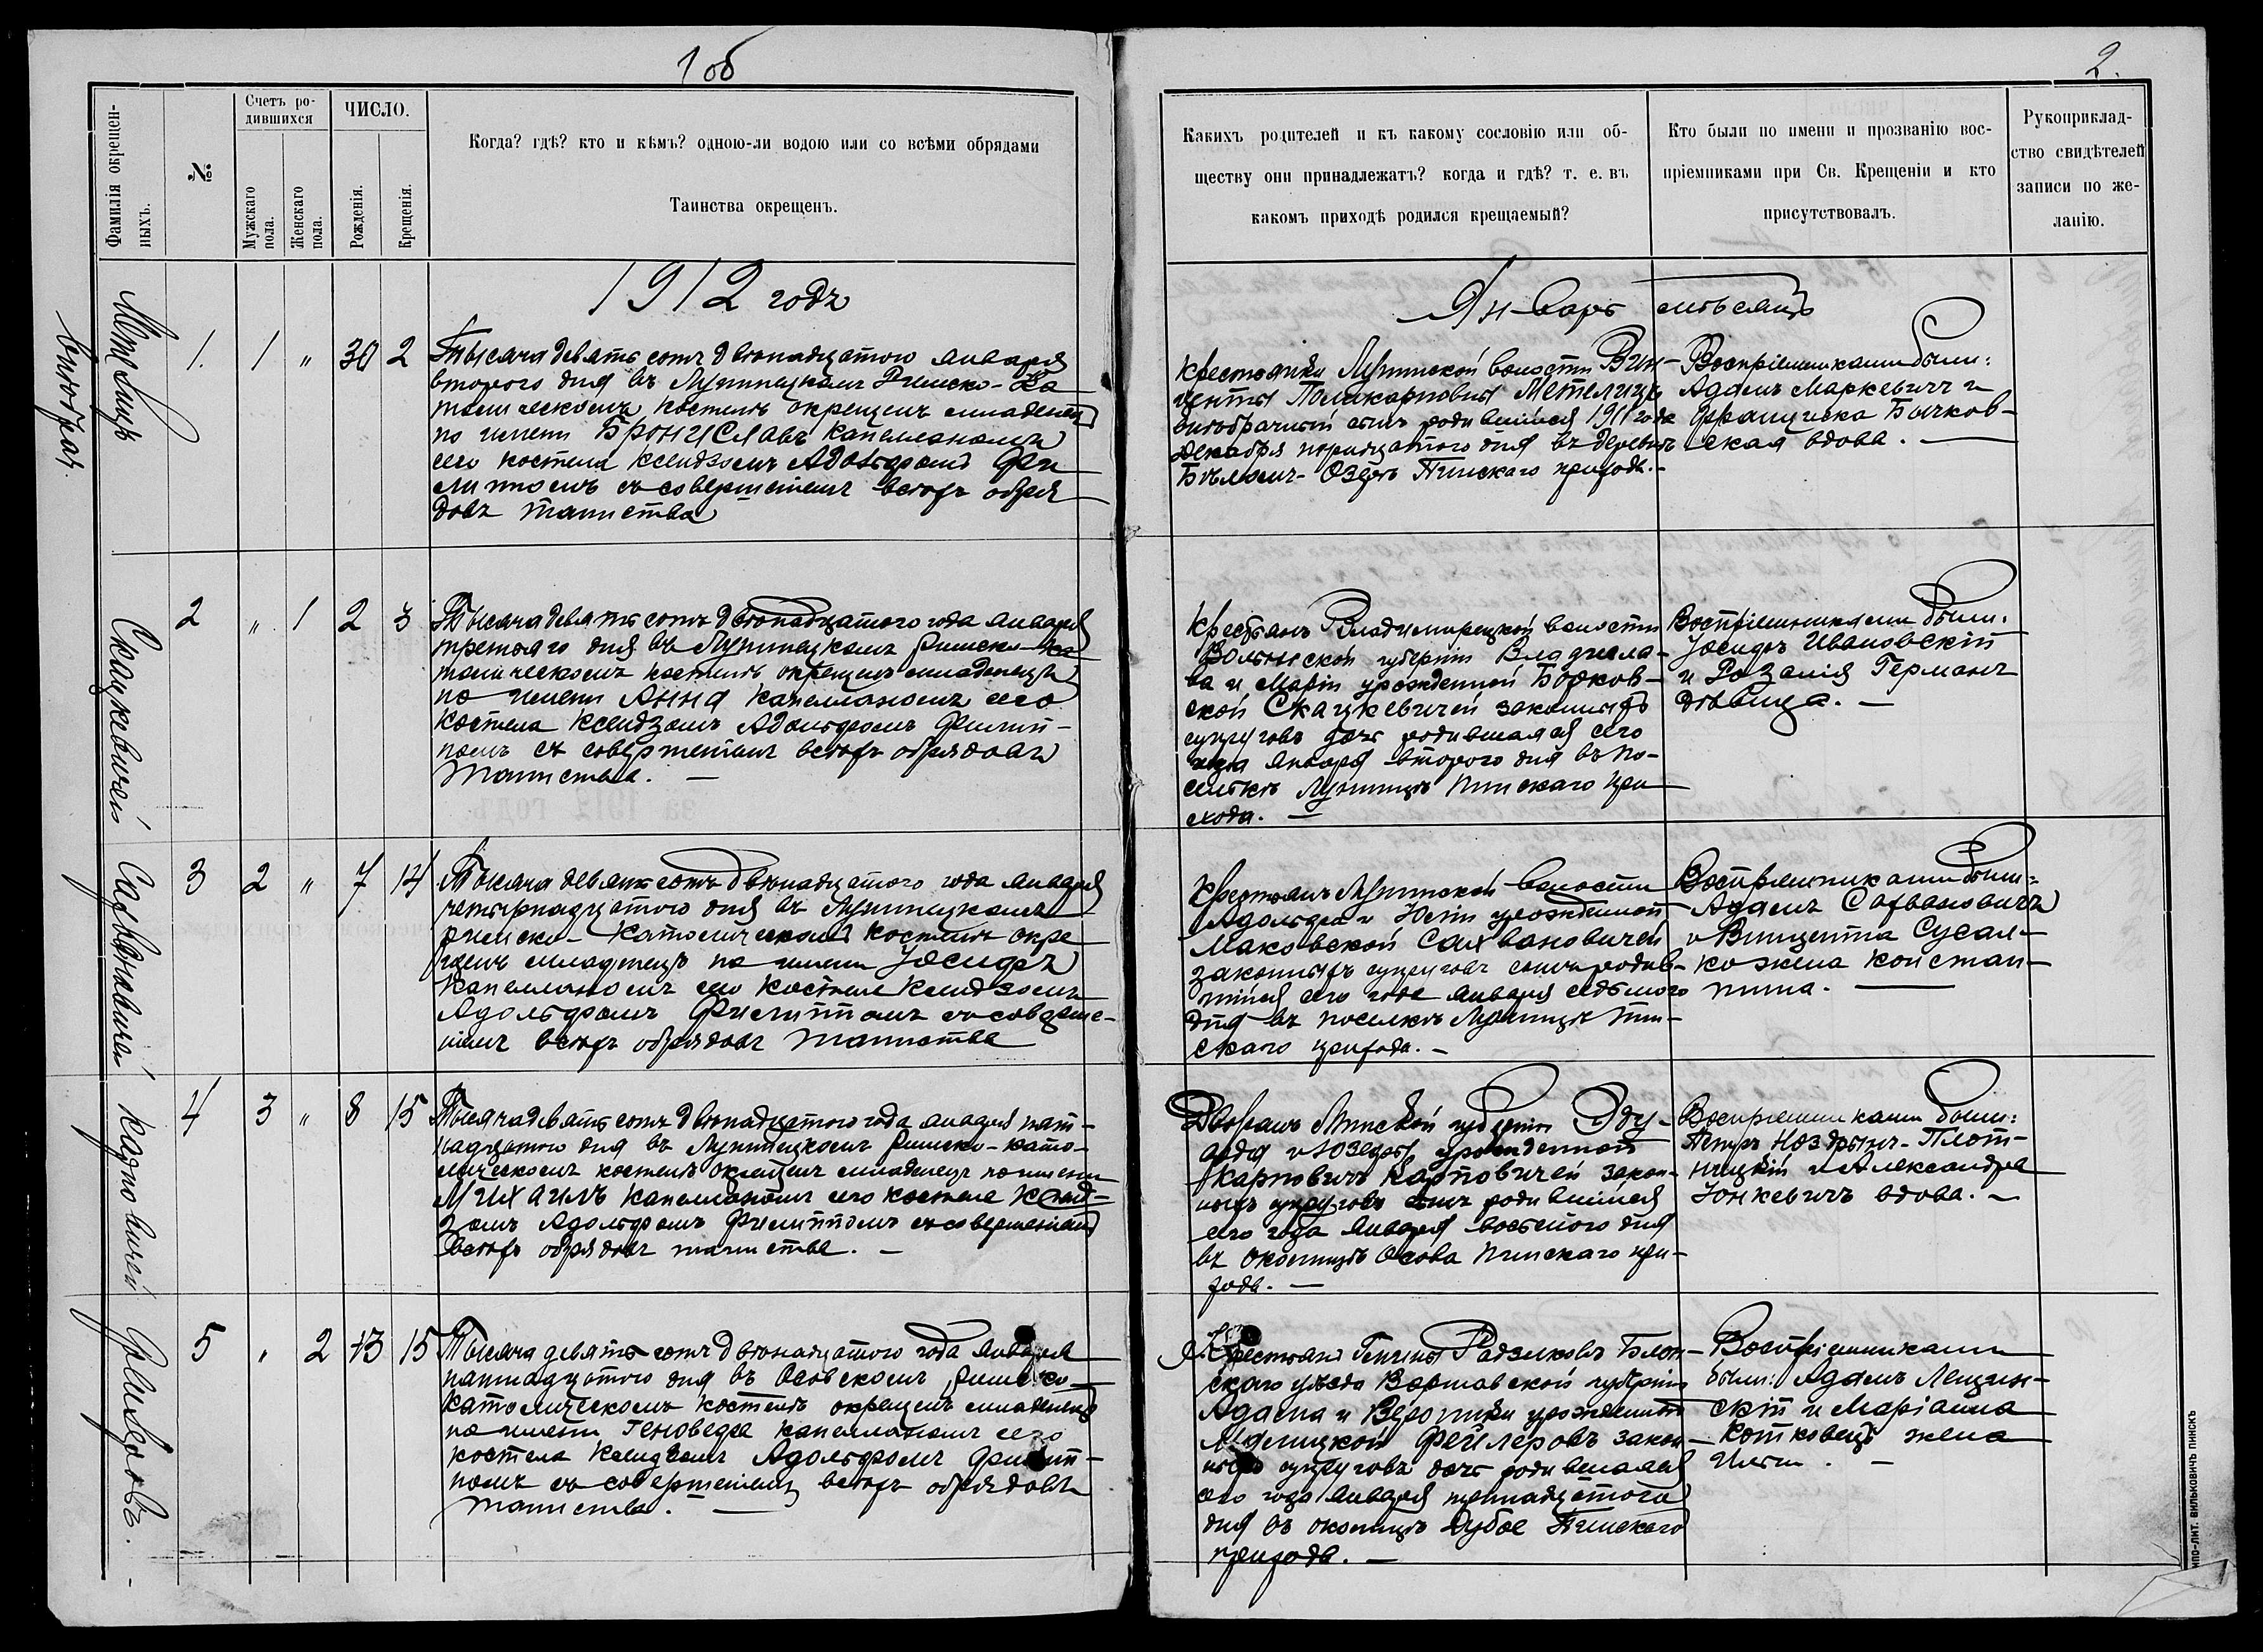 1 об
2.
Фамилія окрещен-
ныхъ.
№
Счетъ ро-
дившихся
Мужскаго
пола.
Женскаго
пола.
ЧИСЛО.
Рожденія.
Крещенія.
Когда? гдѣ? кто и кѣмъ? одною-ли водою или со всѣми обрядами
Таинства окрещенъ.
Какихъ родителей и къ какому сословію или об-
ществу они принадлежатъ? когда и гдѣ? т. е. въ
какомъ приходѣ родился крещаемый?
Кто были по имени и прозванію вос-
пріемниками при Св. Крещеніи и кто
присутствовалъ.
Рукоприклад-
ство свидѣтелей
записи по же-
ланію.
1912 годъ
Январь мѣсяцъ
Метелицъ
внѣбрач.
1. 1 " 30 2
Тысяча девятьсотъ двѣнадцатого января
второго дня въ Лунинецкомъ Римско-Ка
толическомъ костелѣ окрещенъ младенецъ
по имени БРОНИСЛАВЪ капеланомъ
сего костела ксендзомъ Адольфомъ Фи
липпомъ съ совершеніемъ всѣхъ обря
довъ таинства
Крестьянки Лунинской волости Вин-
центы Поликарповны Метелицъ
внѣбрачный сынъ родившійся 1911 года
Декабря тридцатого дня въ деревнѣ
Бѣломъ-Озерѣ Пинскаго прихода.-
Воспріемниками были:
Адамъ Маркевичъ и
Франциска Бычков-
ская вдова. —
Скацкевичей
2 " 1 2 3
Тысяча девятьсотъ двѣнадцатого года января
третьяго дня въ Лунинецкомъ римско-ка
толическомъ костелѣ окрещенъ младенецъ
по имени АННА капелланомъ сего
костела Ксендзомъ Адольфомъ Филип-
помъ съ совершеніемъ всѣхъ обрядовъ
таинства. —
Крестьянъ Владимирецкой волости
Волынской губерніи Владисла-
ва и Маріи урожденной Борков-
ской Скацкевичей законныхъ
супруговъ дочь родившаяся сего
года января второго дня въ по-
селкѣ Лунинцѣ Пинскаго при
хода. —
Воспріемниками были:
Іосифъ Ивановскій
и Розалія Германъ
дѣвица. —
Сахвановичей
3 2 " 7 14
Тысяча девятьсотъ двѣнадцатого года января
четырнадцатого дня въ Лунинецкомъ
римско-католическомъ костелѣ окре
щенъ младенецъ по имени Іосифъ
капелланомъ сего костела ксендзомъ
Адольфомъ Филиппомъ съ соверше-
ніемъ всѣхъ обрядовъ таинства
Крестьянъ Лунинской волости
Адольфа и Юліи урожденной
Маковской Сахвановичей
законныхъ супруговъ сынъ родив-
шійся сего года января седьмого
дня въ поселкѣ Лунинцѣ Пин-
скаго прихода. —
Воспріемниками были:
Адамъ Сахвановичъ
и Винцента Сусал-
ко жена Констан-
тина. —
Карповичей
4 3 " 8 15
Тысяча девятьсотъ двѣнадцатого года января пят-
надцатого дня въ Лунинецкомъ римско-като-
лическомъ костелѣ окрещенъ младенецъ по имени
МИХАИЛЪ капелланомъ сего костела ксенд-
зомъ Адольфомъ Филиппомъ съ совершеніемъ
всѣхъ обрядовъ таинства. —
Дворянъ Минской губерніи Эду-
арда и Юзефы урожденной
Карповичъ Карповичей закон-
ныхъ супруговъ сынъ родившійся
сего года января восьмого дня
въ околицѣ Осова Пинскаго при-
хода. —
Воспріемниками были:
Петръ Ноздрынъ-Плот-
ницкій и Александра
Юнкевичъ вдова. —
Фейлеровъ. -
5 " 2 13 15
Тысяча девятьсотъ двѣнадцатого года января
пятнадцатого дня въ Осовскомъ римско-
католическомъ костелѣ окрещенъ младенецъ
по имени Геновефа капелланомъ сего
костела Ксендзомъ Адольфомъ Филип-
помъ съ совершеніемъ всѣхъ обрядовъ
таинства. —
Крестьянъ Гмины Радзиковъ Блон-
скаго уѣзда Варшавской губерніи
Адама и Вероники урожденной
Фейлеровъ закон-
ныхъ супруговъ дочь родившаяся
сего года января тринадцатого
дня въ околицѣ Дубое Пинскаго
прихода. —
Воспріемниками
были: Адамъ Лещин-
скій и Маріанна
Котковецъ жена
Ильи. —
ТИПО-ЛИТ. ВИЛЬКОВИЧЪ ПИНСКЪ